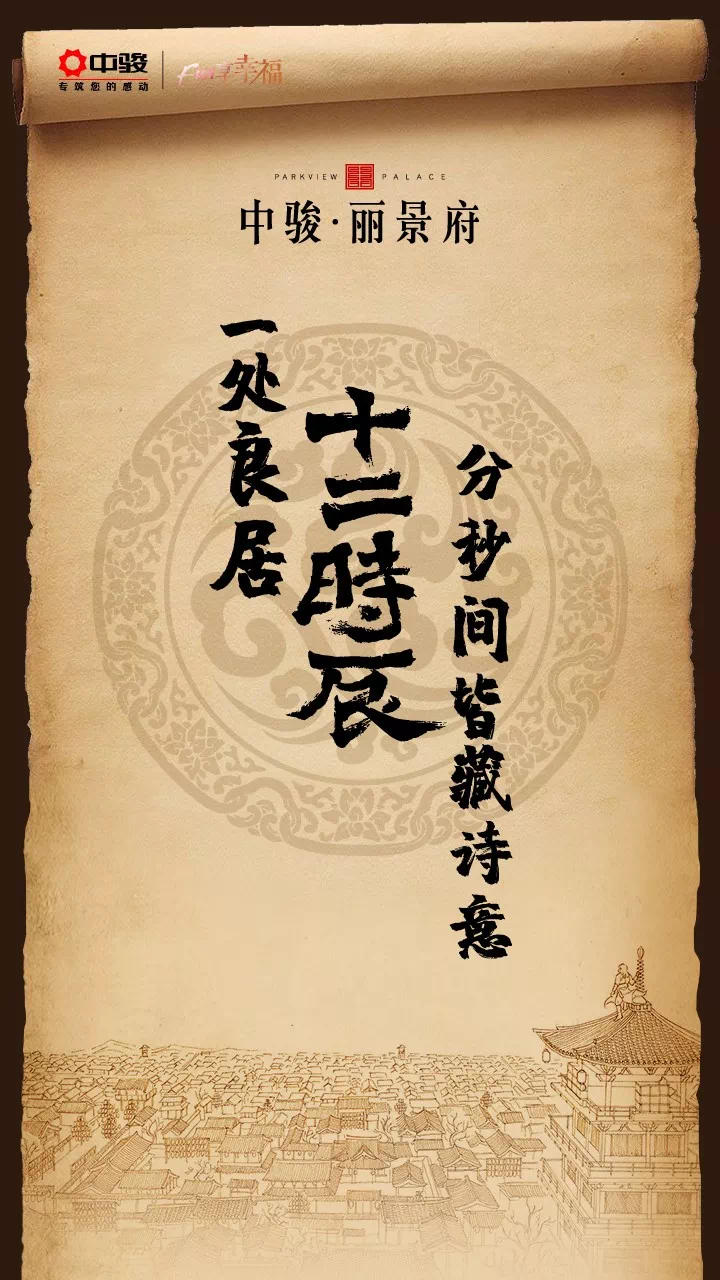 中骏
专筑您的感动
Fun享幸福
PARKVIEW PALACE
中骏·丽景府
一处良居
十二時辰
分秒间皆藏诗意